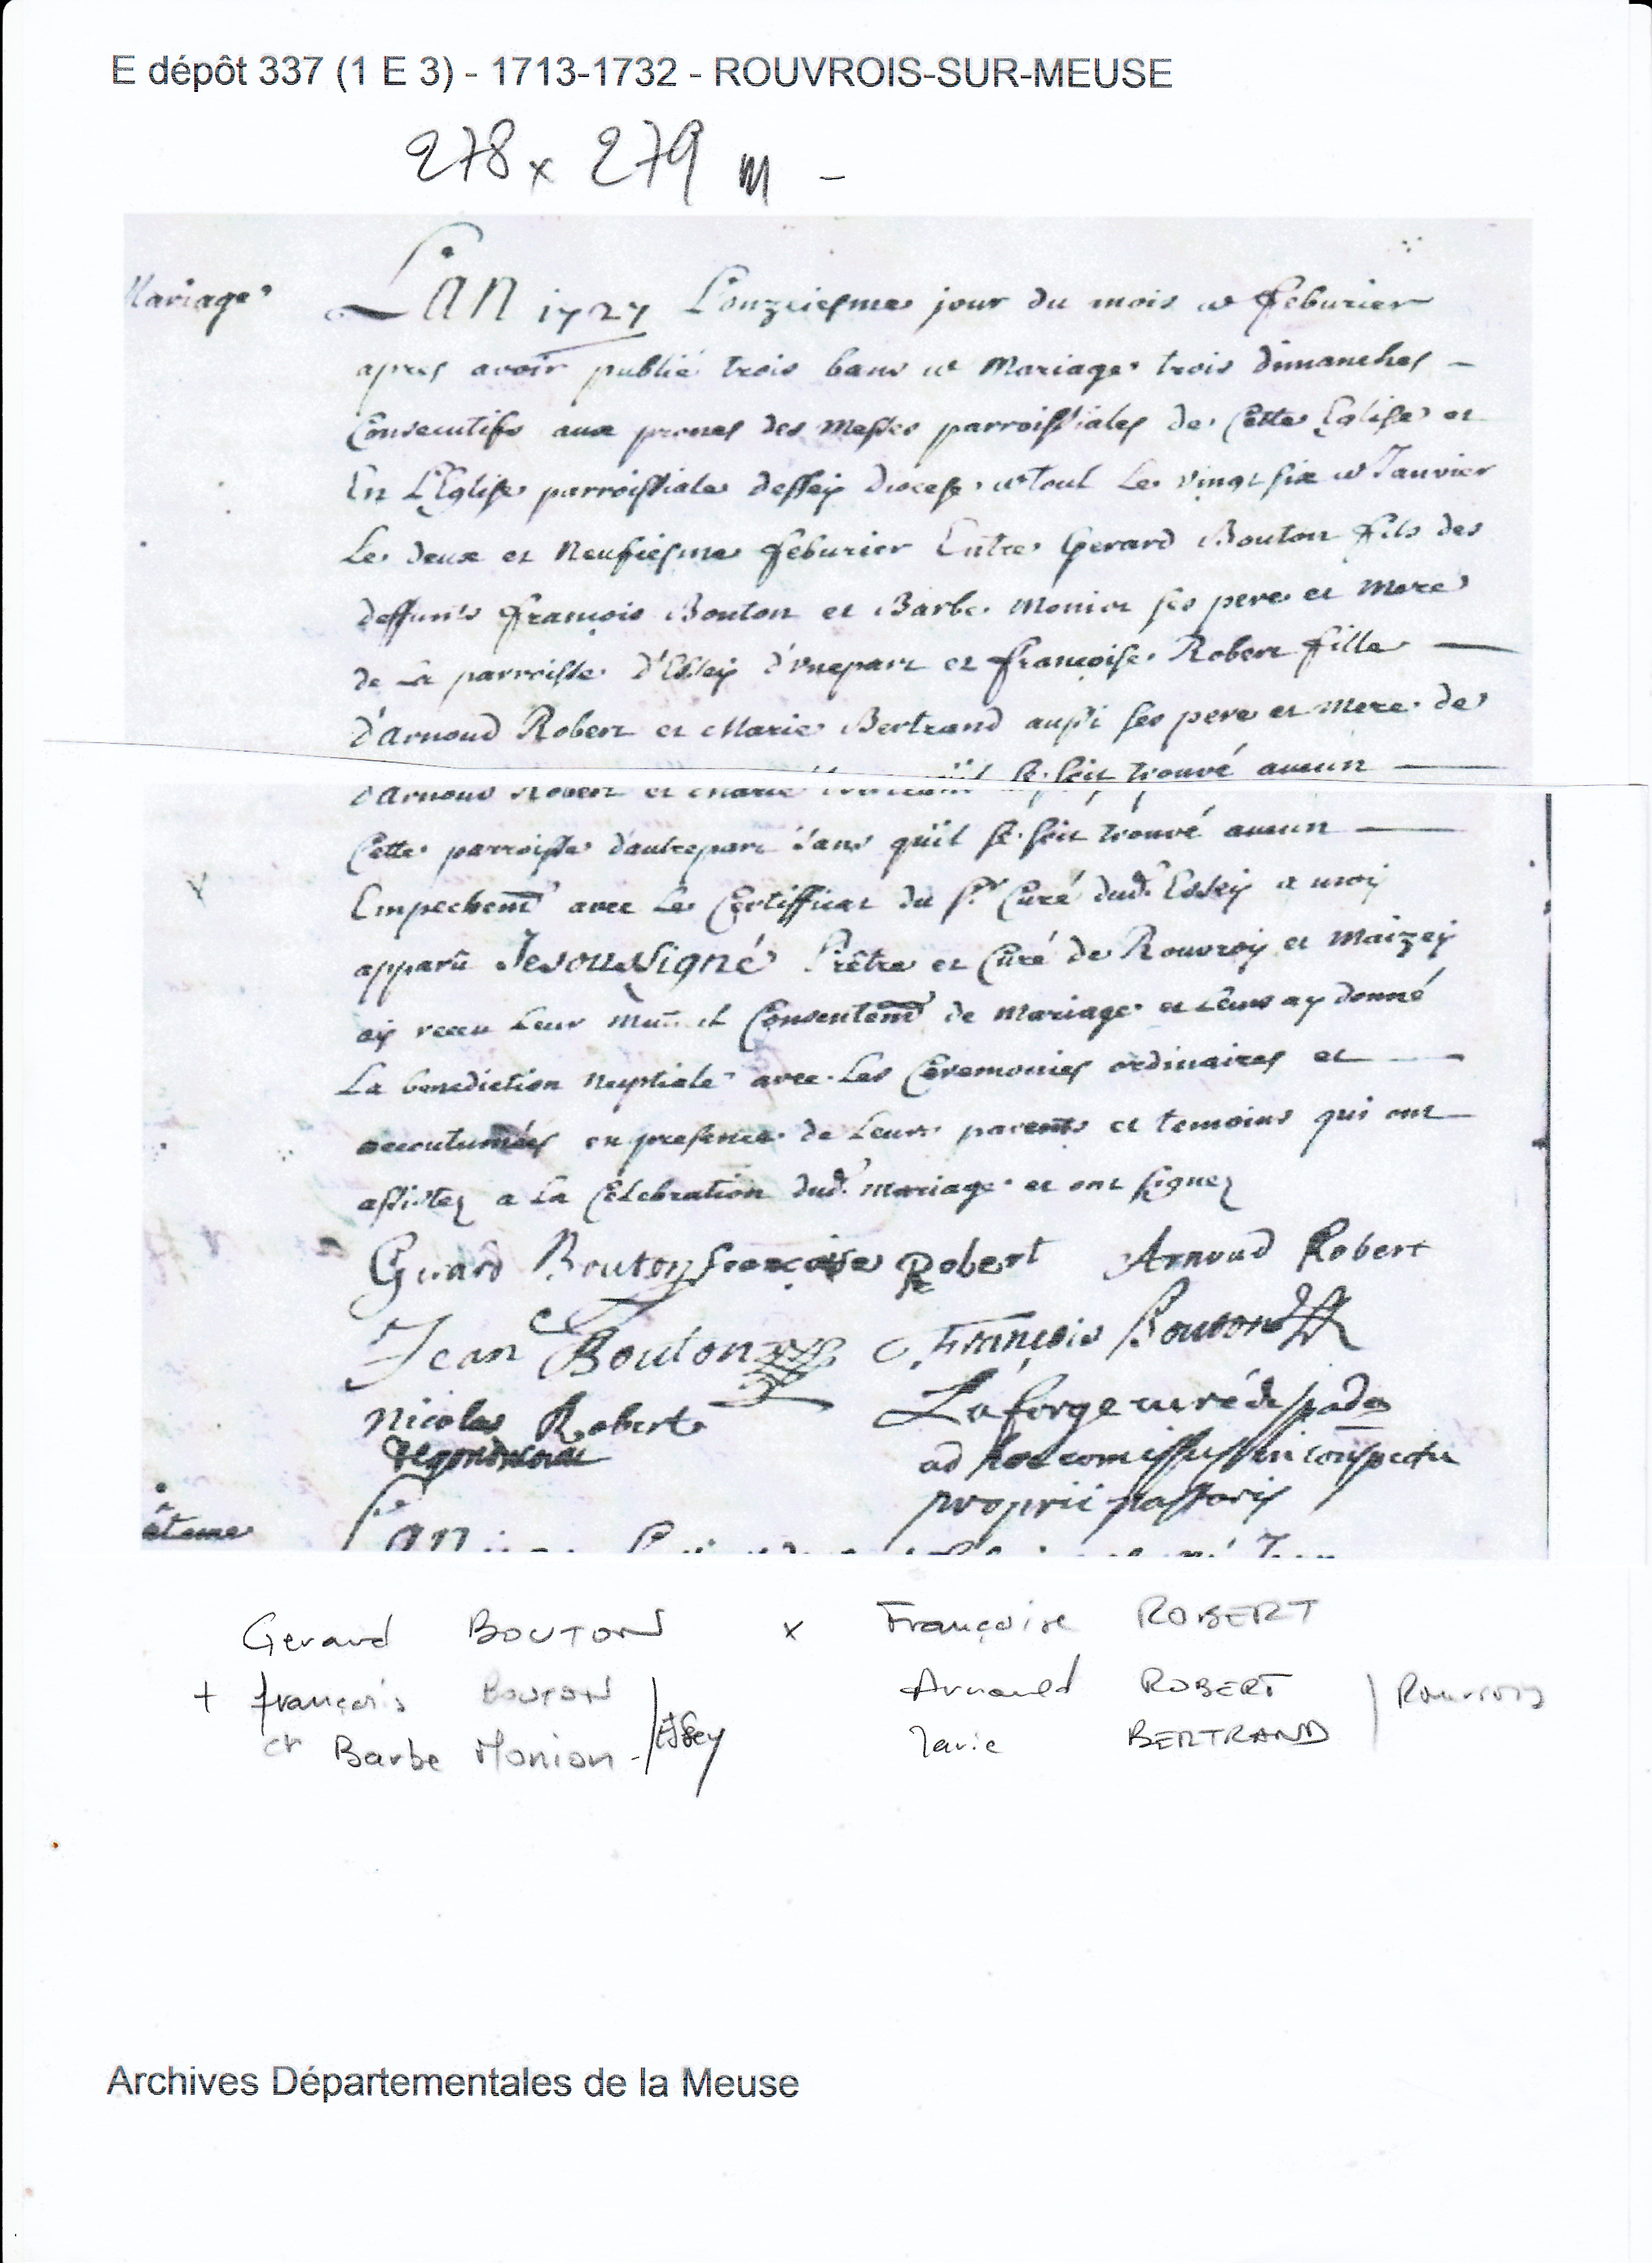 E dépôt 337 (1 E 3) - 1713-1732 - ROUVROIS-SUR-MEUSE
278 x 279 m -
Mariage
L'an 1727 L'onziesme jour du mois de feburier
apres avoir publié trois bans de Mariage trois dimanches -
Consecutifs aux prones des Messes parroissiales de Cette Eglise et
En L'Eglise parroissiale dessey diocese de toul Le vingt six de Janvier
Le deux et Neufiesme feburier Entre Gerard Bouton fils des
deffunts françois Bouton et Barbe Monion ses pere et Mere
de La parroisse d'Essey d'unepart et françoise Robert fille
d'Arnoud Robert et Marie Bertrand aussi ses pere et Mere de
se soit trouvé aucun
d'Arnoud Robert et Marie
Cette parroisse d'autrepart sans quil se soit trouvé aucun
Empechem̃t avec Le Certifficat du Sr. Curé dud. Essey a moy
apparû Jesoussigné Prêtre et Curé de Rouvroy et Maizey
ay receu Leur Mutuel Consentem̃t de Mariage et Leurs ay donné
La benediction Nuptiale avec Les Ceremonies ordinaires et
accoutumées en presence de Leurs parents et temoins qui ont
assistez a La Celebration dud. mariage et ont signez
Gerard Bouton françoise Robert Arnoud Robert
Jean Bouton François Bouton
Nicolas Robert Laforge curé de spada
ad hoc comissus in conspectu
proprii pastoris
L'an
Gerard BOUTON x Françoise ROBERT
+ françois BOUTON Arnould ROBERT Rouvrois
et Barbe Monion - Essey Marie BERTRAND
Archives Départementales de la Meuse